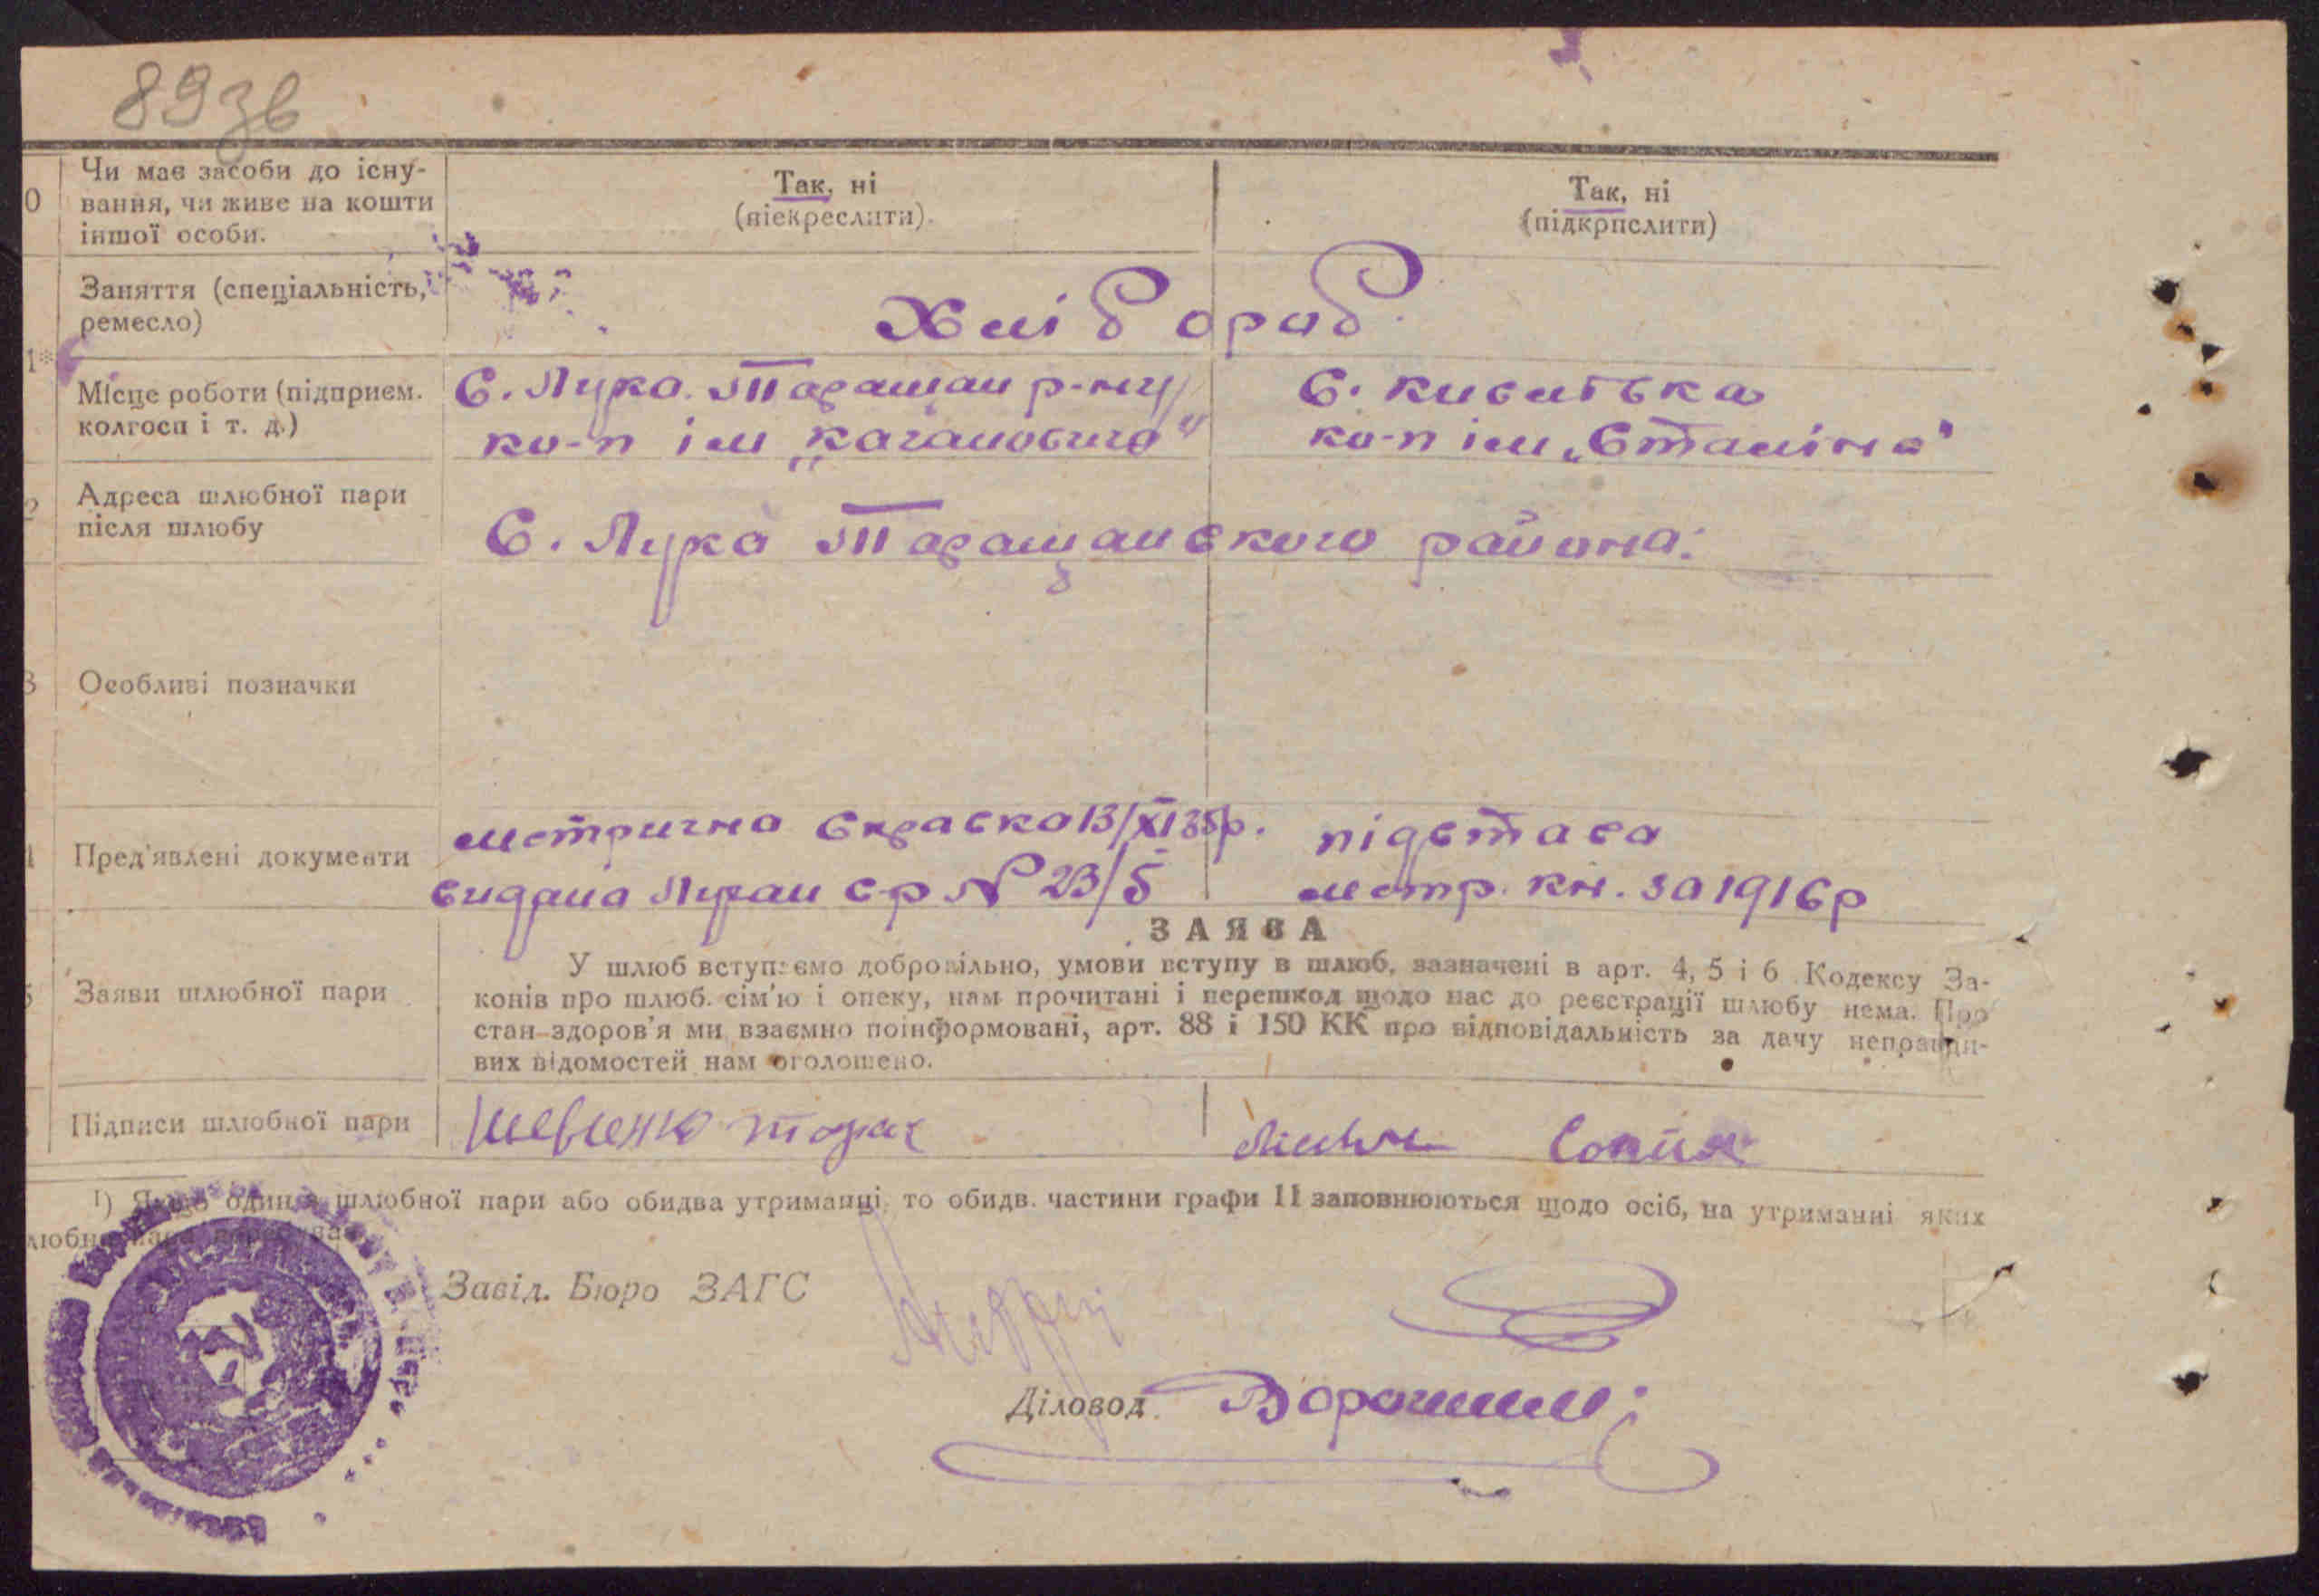 89зв
0 Чи має засоби до існу-
вання, чи живе на кошти
іншої особи.
Так, ні
(піекреслити).
Так, ні
(підкрпслити)
Заняття (спеціальність,
ремесло)
Хлібороб.
1*
Місце роботи (підприєм.
колгосп і т. д.)
С. Лука. Таращан р-ну
ко-п ім „Кагановича"
С. Кисилівка
ко-п ім „Сталіна"
2 Адреса шлюбної пари
після шлюбу
С. Лука Таращанского района.
3 Особливі позначки
Пред'явлені документи
метрична справка 13/XI 35р.
видана Лукан с-р № 23/5
підстава
метр. кн. за 1916р
ЗАЯВА
5 Заяви шлюбної пари
У шлюб вступаємо добровільно, умови вступу в шлюб, зазначені в арт. 4, 5 і 6 Кодексу За-
конів про шлюб. сім'ю і опеку, нам прочитані і перешкод щодо нас до реєстрації шлюбу нема. Про
стан здоров'я ми взаємно поінформовані, арт. 88 і 150 КК про відповідальність за дачу неправди-
вих відомостей нам оголошено.
Підписи шлюбної пари
Шевченко Тарас
Софія
1) Якщо один з шлюбної пари або обидва утриманці, то обидв. частини графи 11 заповнюються щодо осіб, на утриманні яких
любна пара
Завід. Бюро ЗАГС
Діловод